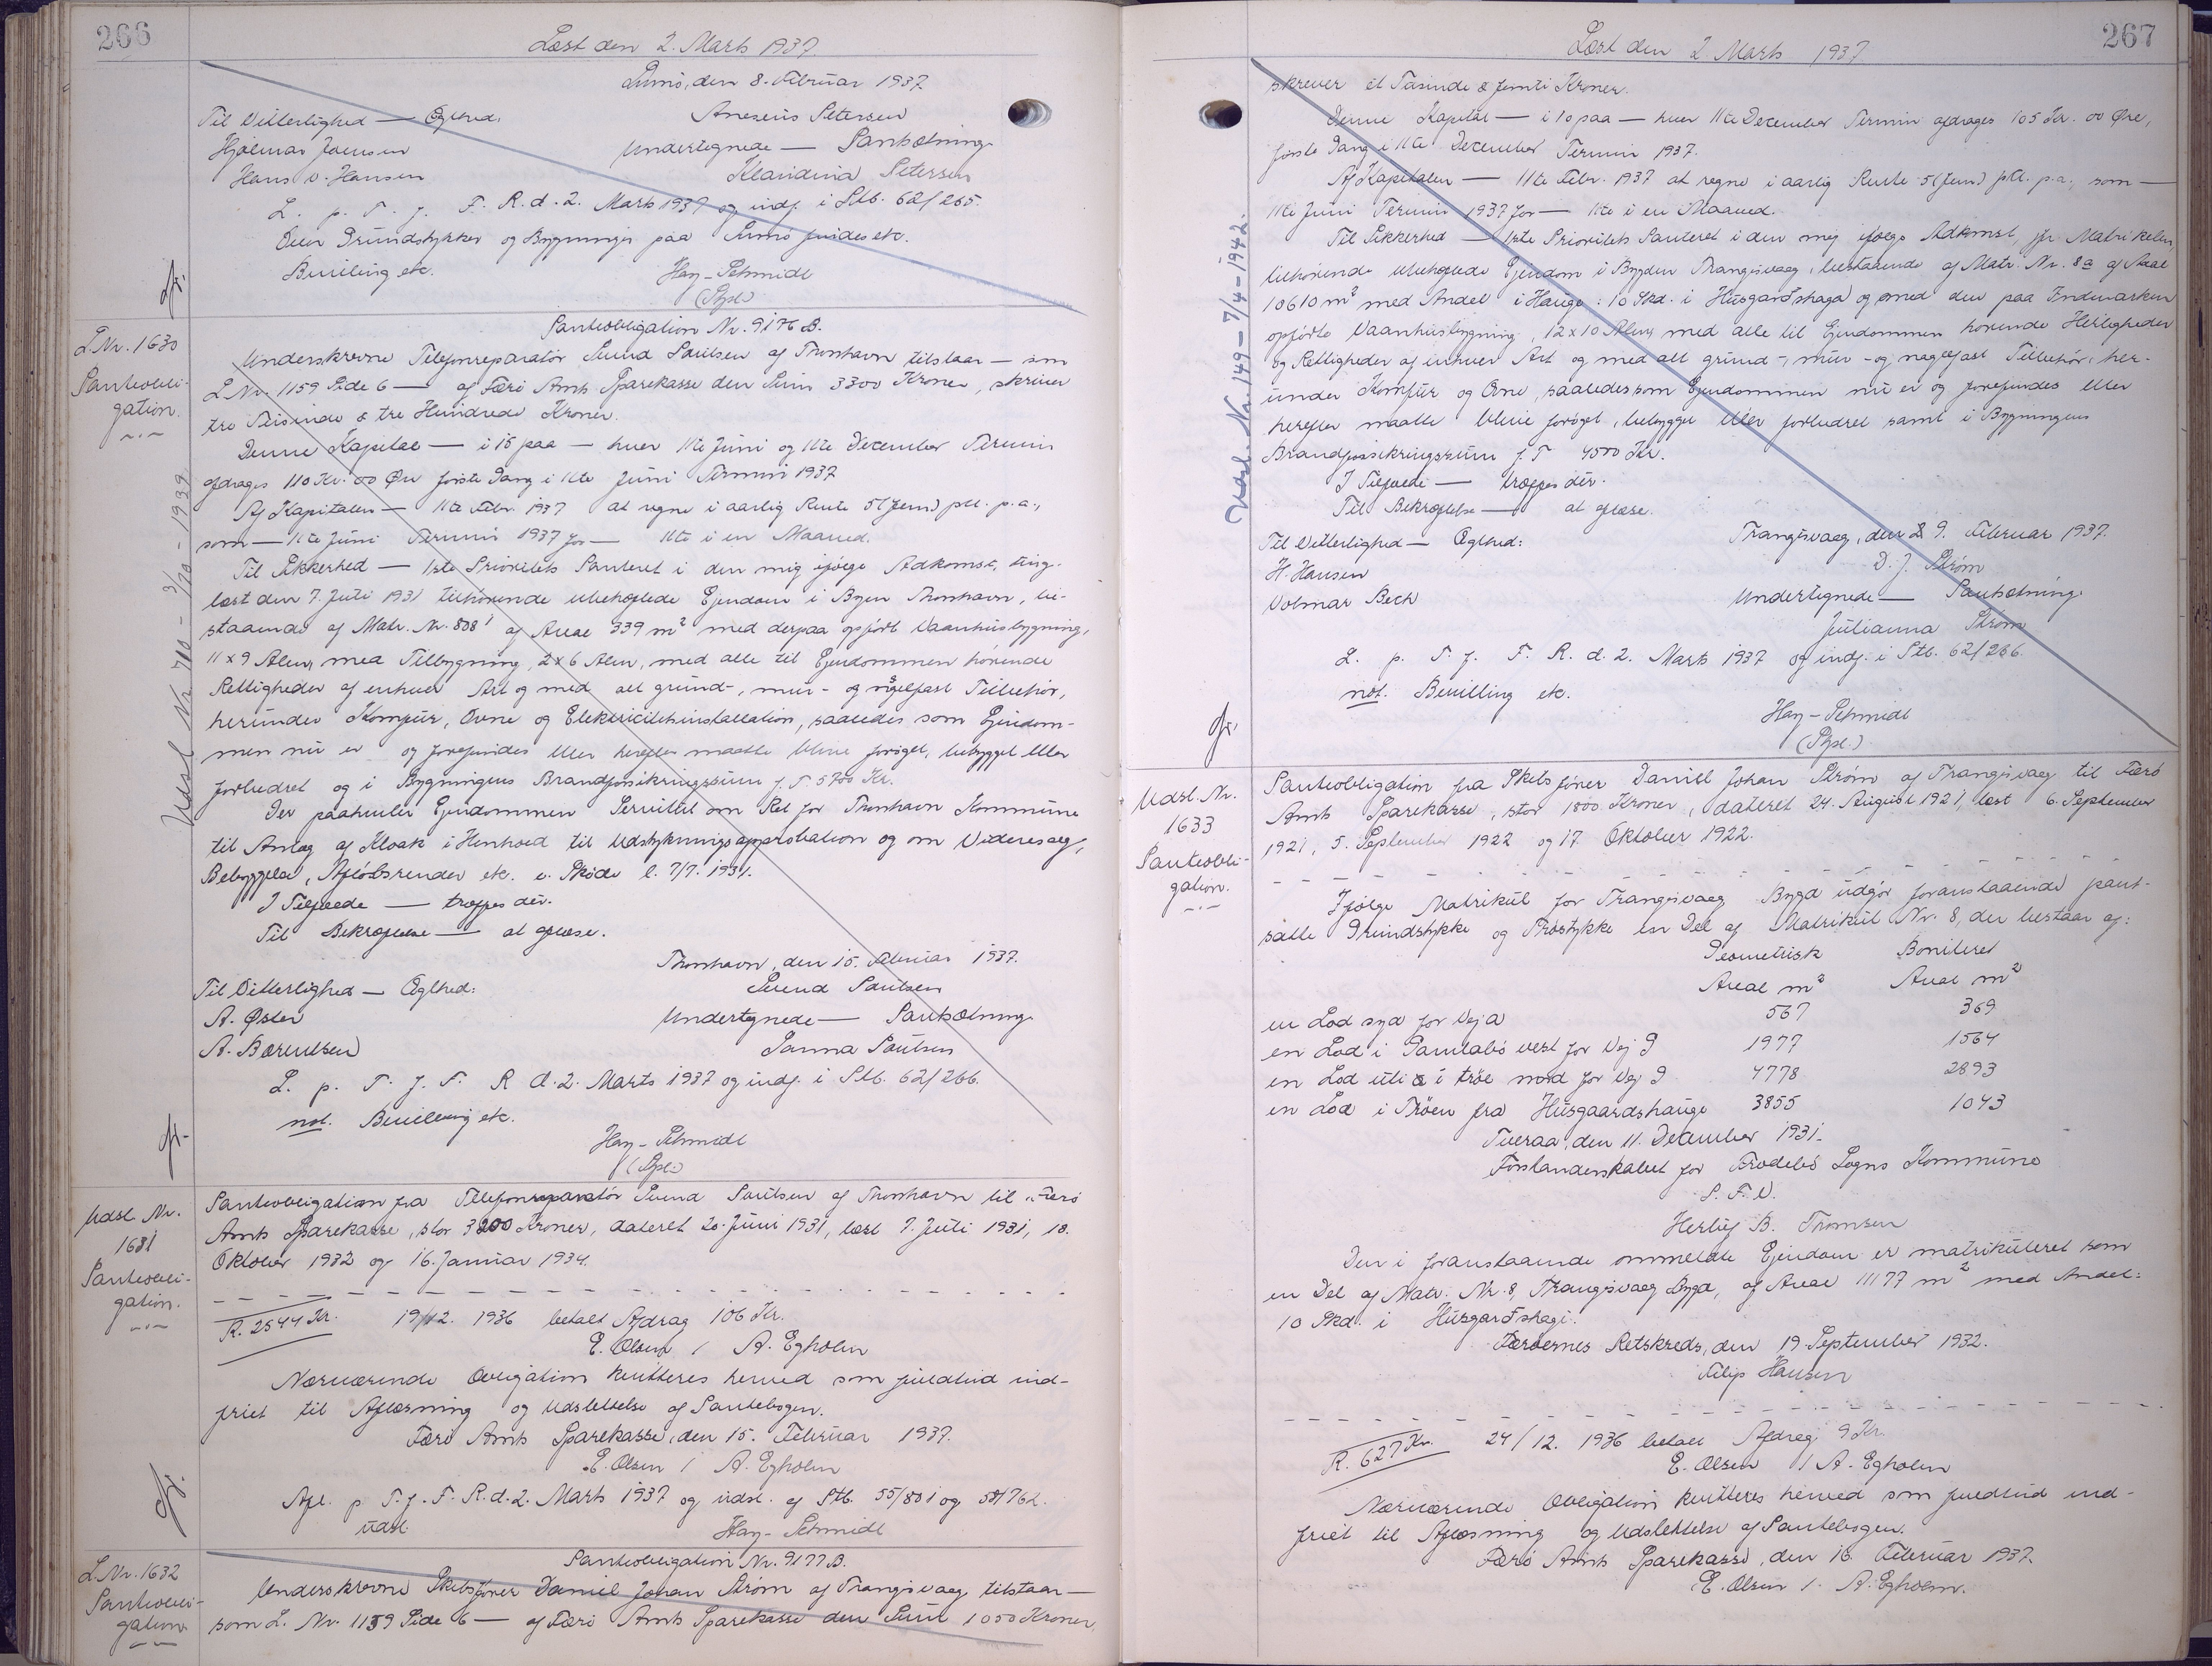 266
Læst den 2. Marts 1937.
Sumö, den 8. Februar 1937.
Til Vitterlighed — Ægthed:
Anesius Petersen
Hjalmar Joensen
Undertegnede — Pantsætning.
Hans D. Hansen
Klaudina Petersen
L. p. T. f. F. R. d. 2. Marts 1937 og indf. i Ptb. 62/265.
Over Grundstykker og Bygninger paa Sumö findes etc.
Bevilling etc.
Hay-Schmidt
(Gpl.)
L Nr. 1630
Panteobli-
gation.
Udsl. Nr 710 - 3/10 - 1939
Panteobligation Nr. 9176 B.
Underskrevne Telefonreparatør Svend Poulsen af Thorshavn tilstaar — som
L Nr. 1159 Side 6 — af Færö Amts Sparekasse den Sum 3300 Kroner, skriver
tre Tusinde & tre Hundrede Kroner.
Denne Kapital — i 15 paa — hver 11te Juni og 11te December Termin
afdrages 110 Kr. 00 Øre første Gang i 11te Juni Termin 1937
Af Kapitalen — 11te Febr. 1937 at regne i aarlig Rente 5 (fem) pCt. p.a.,
som — 11te Juni Termin 1937 for — 11te i en Maaned.
Til Sikkerhed — 1ste Prioritets Panteret i den mig ifølge Adkomst, ting-
læst den 7. Juli 1931 tilhørende ubehæftede Ejendom i Byen Thorshavn, be-
staaende af Matr. Nr. 808 i af Areal 339 m² med derpaa opført Vaanhusbygning,
11 x 9 Alen, med Tilbygning, 2 x 6 Alen, med alle til Ejendommen hørende
Rettigheder af enhver Art og med alt grund-, mur- og nagelfast Tilbehør,
herunder Komfur, Ovne og Elektricitetsinstallation, saaledes som Ejendom-
men nu er og forefindes eller herefter maatte blive forøget, bebygget eller
forbedret og i Bygningens Brandforsikringssum f. T. 5700 Kr.
Der paahviler Ejendommen Servitut om Ret for Thorshavn Kommune
til Anlæg af Kloak i Henhold til Udstykningsapprobation og om Videresalg,
Bebyggelse, Afløbsrender etc. v. Skøde l. 7/7. 1931.
I Tilfælde — træffes dér.
Til Bekræftelse — at aflæse.
Thorshavn, den 15. Februar 1937.
Til Vitterlighed — Ægthed:
Svend Poulsen
A. Øster
Undertegnede — Pantsætning.
A. Bærentsen
Sanna Poulsen
L. p. T. f. F. R d. 2. Marts 1937 og indf. i Ptb. 62/266.
not. Bevilling etc.
Hay-Schmidt
(Gpl.)
Udsl. Nr.
1631
Panteobli-
gation.
Panteobligation fra Telefonreparatør Svend Poulsen af Thorshavn til Færö
Amts Sparekasse, stor 3200 Kroner, dateret 20. Juni 1931, læst 7. Juli 1931, 18.
Oktober 1932 og 16. Januar 1934.
R. 2544 Kr. 19/12. 1936 betalt Afdrag 106 Kr.
E. Olsen / A. Egholm
Nærværende Obligation kvitteres herved som fuldtud ind-
friet til Aflæsning og Udslettelse af Pantebogen.
Færö Amts Sparekasse, den 15. Februar 1937.
E. Olsen / A. Egholm
Afl. p T. f. F. R. d. 2. Marts 1937 og udsl. af Ptb. 55/801 og 58/762.
udsl.
Hay-Schmidt
L. Nr. 1632
Panteobli-
gation.
Panteobligation Nr. 9177 B.
Underskrevne Skibsfører Daniel Johan Strøm af Trangisvaag tilstaar —
som L. Nr. 1159 Side 6 — af Færö Amts Sparekasse den Sum 1050 Kroner,
267
Læst den 2. Marts 1937
Udsl. Nr. 149 - 7/4 - 1942.
skrever et Tusinde & femti Kroner.
Denne Kapital — i 10 paa — hver 11te December Termin afdrages 105 Kr. 00 Øre,
første Gang i 11te December Termin 1937.
Af Kapitalen — 11te Febr. 1937 at regne i aarlig Rente 5 (fem) pCt. p.a., som —
11te Juni Termin 1937 for — 11te i en Maaned.
Til Sikkerhed — 1ste Prioritets Panteret i den mig ifølge Adkomst, jfr. Matrikelen,
tilhørende ubehæftede Ejendom i Bygden Trangisvaag, bestaaende af Matr. Nr. 8a af Areal
10610 m² med Andel i Hauge: 10 Skd. i Húsgarðshaga og med den paa Indmarken
opførte Vaanhusbygning, 12 x 10 Alen, med alle til Ejendommen hørende Herligheder
og Rettigheder af enhver Art og med alt grund-, mur- og nagelfast Tilbehør, her-
under Komfur og Ovne, saaledes som Ejendommen nu er og forefindes eller
herefter maatte blive forøget, bebygget eller forbedret samt i Bygningens
Brandforsikringssum f. T 4500 Kr.
I Tilfælde — træffes dér.
Til Bekræftelse — at aflæse.
Til Vitterlighed — Ægthed:
Trangisvaag, den 9. Februar 1937.
H. Hansen
D. J. Strøm
Volmar Bech
Undertegnede — Pantsætning.
Julianna Strøm
L. p. T. f. F. R. d. 2. Marts 1937 og indf. i Ptb. 62/266.
not. Bevilling etc.
Hay-Schmidt
(Gpl.)
Udsl. Nr.
1633
Panteobli-
gation.
Panteobligation fra Skibsfører Daniel Johan Strøm af Trangisvaag til Færö
Amts Sparekasse, stor 1800 Kroner, dateret 24. August 1921, læst 6. September
1921, 5. September 1922 og 17. Oktober 1922.
Ifølge Matrikul for Trangisvaag Bygd udgør foranstaaende pant-
satte Grundstykke og Trøstykke en Del af Matrikul Nr. 8, der bestaar af:
Geometrisk Boniteret
Areal m² Areal m²
en Lod syd for Vej a 567 369
en Lod i Gamlabö vest for Vej g 1977 1564
en Lod uti i trøe nord for Vej g 4778 2893
en Lod i Trøen fra Húsgaardshauge 3855 1043
Tveraa, den 11. December 1931.
Forstanderskabet for Frodebö Sogns Kommune
P. F. V.
Herluf B. Thomsen
Den i foranstaaende ommeldte Ejendom er matrikuleret som
en Del af Matr. Nr. 8, Trangisvaag Bygd, af Areal 11177 m² med Andel:
10 Skd. i Húsgarðshagi.
Færøernes Retskreds, den 19. September 1932.
Filip Hansen
R. 627 Kr. 24/12. 1936 betalt Afdrag 9 Kr.
E. Olsen / A. Egholm
Nærværende Obligation kvitteres herved som fuldtud ind-
friet til Aflæsning og Udslettelse af Pantebogen.
Færö Amts Sparekasse, den 16. Februar 1937.
E. Olsen /. A. Egholm.